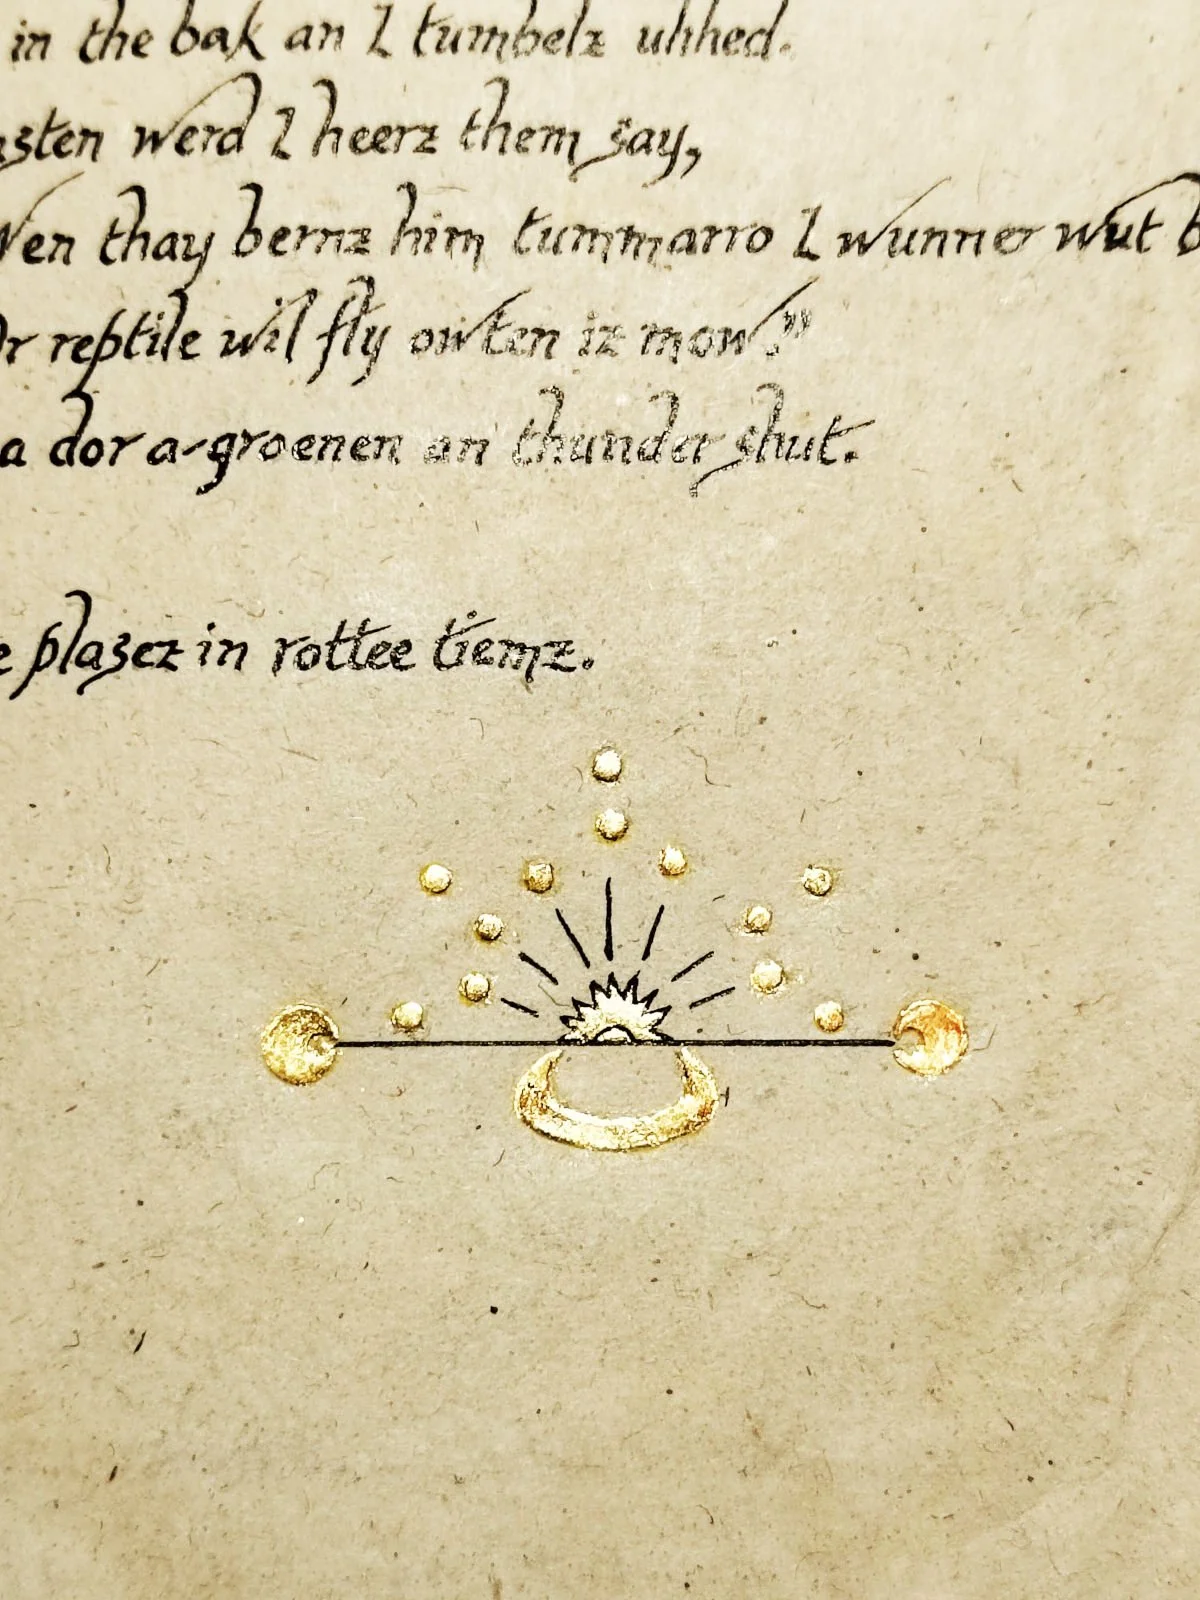 in the bak an I tumbelz uhhed.
werd I heerz them say,
thay bernz him tummarro I wunner wut
reptile wil fly owten iz mow”
a dor a-groenen an thunder shut.
plasez in rottee tiemz.